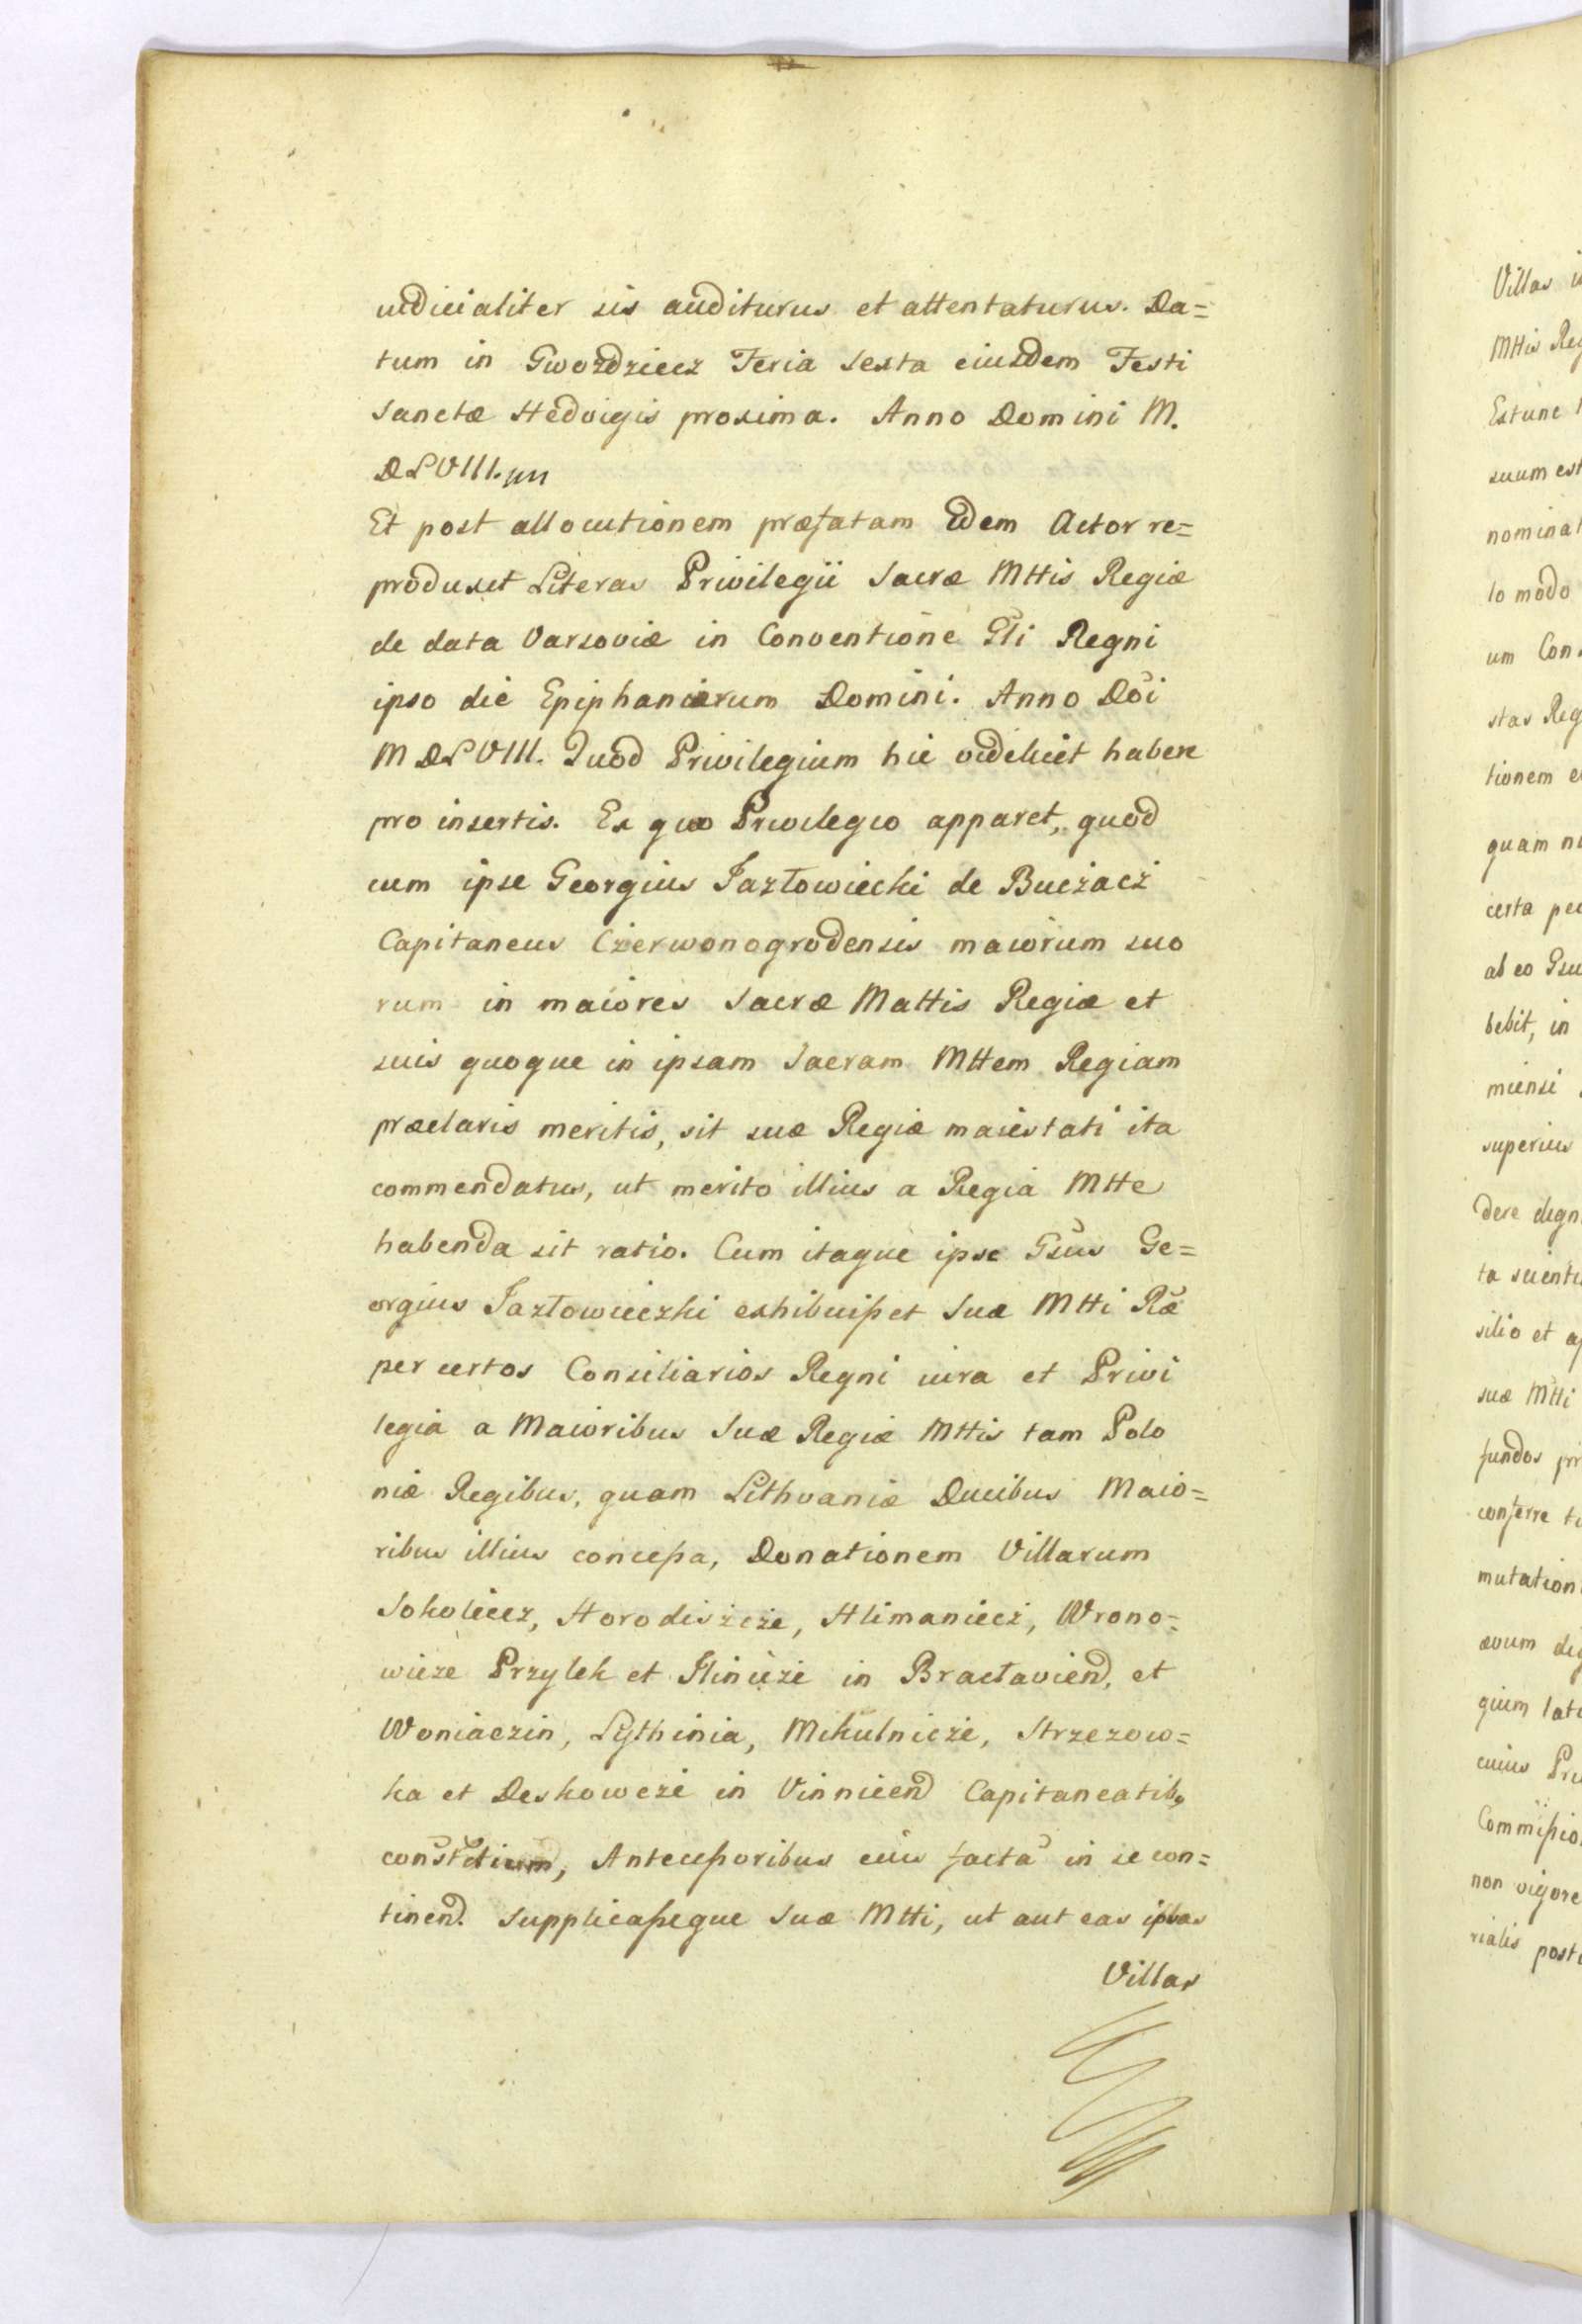 iudicialiter sis auditurus et attentaturus. Da=
tum in Gwozdziecz Feria Sexta eiusdem Festi
Sanctæ Hedvigis proxima. Anno Domini M.
DLVIII.
Et post allocutionem præfatam Idem Actor re=
produxit Literas Privilegii Sacræ Mttis Regiæ
de data Varsoviæ in Conventione Gli Regni
ipso die Epiphaniarum Domini. Anno Doi
MDLVIII. Quod Privilegium hic videlicet habere
pro insertis. Ex quo Privilegio apparet, quod
cum ipse Georgius Jazłowiecki de Buczacz
Capitaneus Czerwonogrodensis maiorum suo
rum in maiores Sacræ Mattis Regiæ et
suis quoque in ipsam Sacram Mttem Regiam
præclaris meritis, sit suæ Regiæ maiestati ita
commendatus, ut merito illius a Regia Mtte
habenda sit ratio. Cum itaque ipse Gsus Ge=
orgius Jazłowieczki exhibuisset Suæ Mtti Ræ
per certos Consiliarios Regni iura et Privi
legia a Maioribus Suæ Regiæ Mttis tam Polo
niæ Regibus, quam Lithvaniæ Ducibus Maio=
ribus illius concessa, Donationem Villarum
Sokoliecz, Horodiszcze, Hlimaniecz, Wrono=
wicze Przylek et Ilincze in Bractaviend, et
Woniaczin, Lythinia, Mikulnicze, Strzezow=
ka et Deskowcze in Vinniend Capitaneatib9
Antecessoribus eius facta in se con=
tinend. Supplicasseque Suæ Mtti, ut aut eas ipsas
Villas
Villas
Mttis Reg
Extunc
suum est
nominat
lo modo
um Con
stas Reg
tionem
quam
certa pec
ab eo Gsu
bebit, in
miensi
superius
dere dign
ta scienti
silio et
suæ Mtti
fundos
conferre
mutation
ævum
gium
cuius
Commissio
non vigore
rialis post